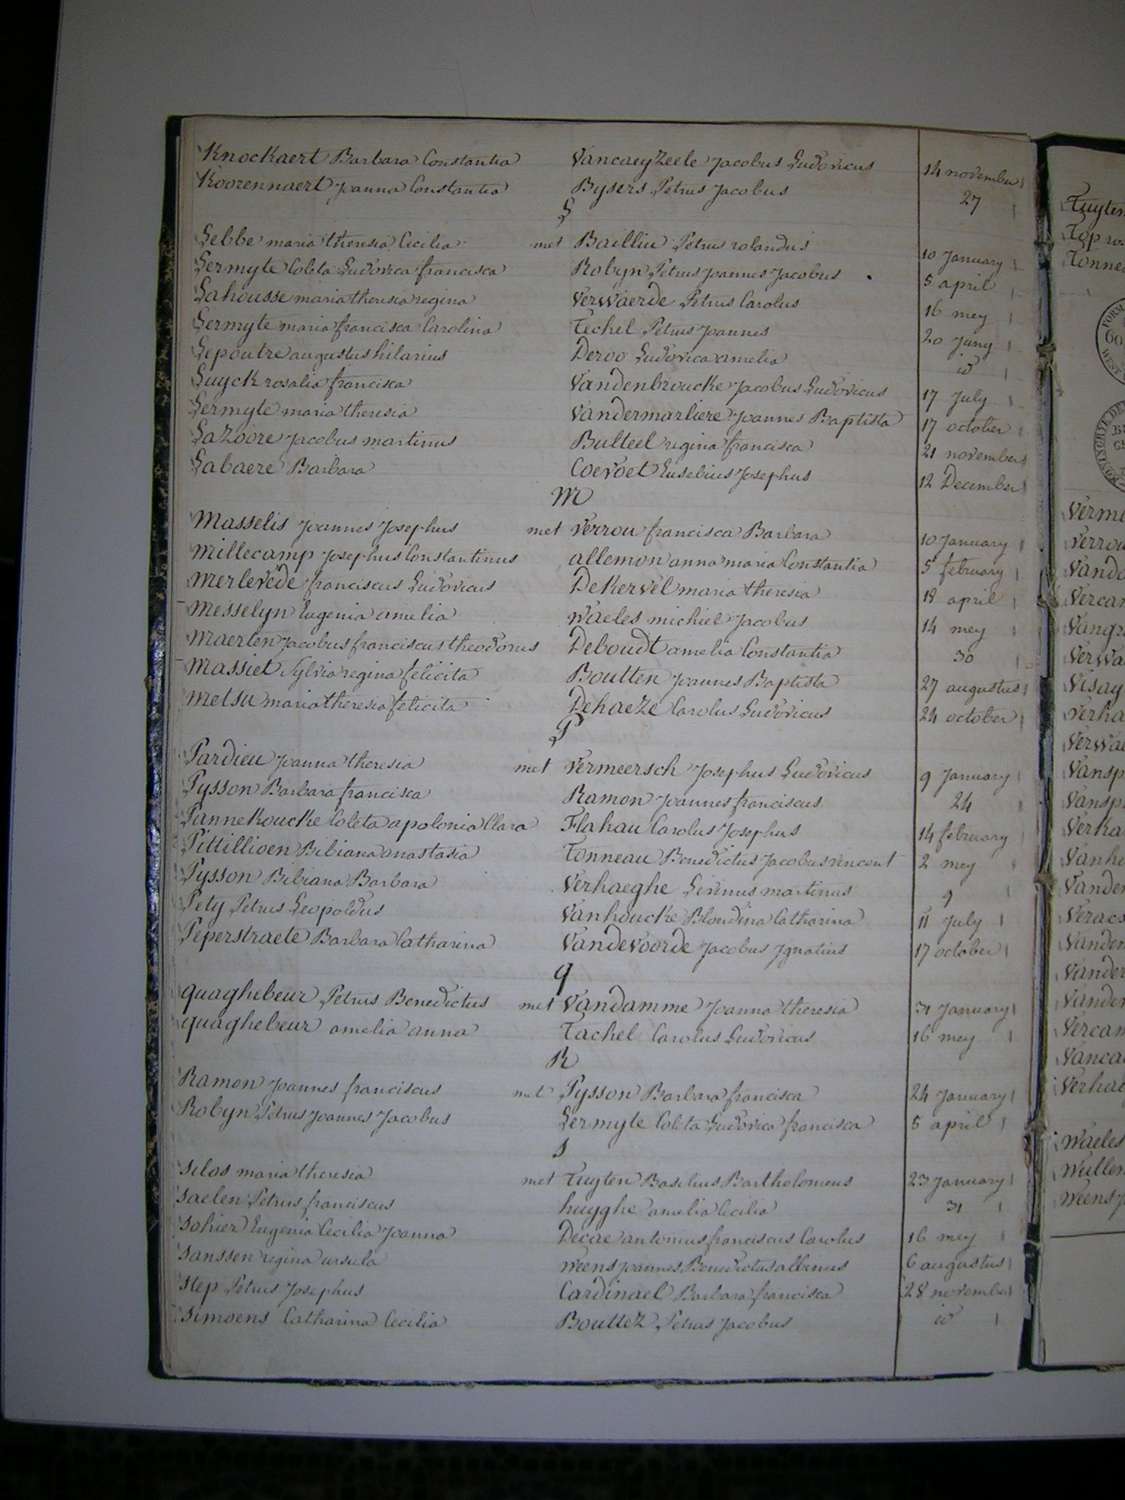 Knockaert Barbara Constantia Vancayzeele Jacobus Ludovicus 14 november
Koorennaert Joanna Constantia Bysers Petrus Jacobus 27
L
Lebbe maria theresia Cecilia met Bailliu Petrus rolandus 10 January
Lermyte Coleta Ludovica francisca Robyn Petrus Joannes Jacobus 5 april
Lahousse maria theresia regina Verwaerde Petrus Carolus 16 mey
Lermyte maria francisca Carolina Techel Petrus Joannes 20 Juny
Lepoutre augustus hilarius Deroo Ludovica amelia id
Luyck rosalia francisca Vandenbroucke Jacobus Ludovicus 17 July
Lermyte maria theresia Vandermarliere Joannes Baptista 17 october
Lazoore Jacobus martinus Bulteel regina francisca 21 november
Labaere Barbara Coevoet Eusebius Josephus 12 December
M
Masselis Joannes Josephus met Verrou francisca Barbara 10 January
Millecamp Josephus Constantinus allemon anna maria Constantia 5 february
Merlevede franciscus Ludovicus Dekervel maria theresia 18 april
Messelyn Eugenia amelia Waeles michiel Jacobus 14 mey
Maerten Jacobus franciscus theodorus Deboudt amelia Constantia 30
Massiet Sylvia regina felicita Boutten Joannes Baptista 27 augustus
Metsu maria theresia felicita Dehaeze Carolus Ludovicus 24 october
P
Pardieu Joanna theresia met Vermeersch Josephus Ludovicus 9 January
Pysson Barbara francisca Ramon Joannes franciscus 24
Pannekoucke Coleta apolonia Clara Flahau Carolus Josephus 14 february
Pittillioen Bibiana anastasia Tonneau Benedictus Jacobus vincent 2 mey
Pysson Bibiana Barbara Verhaeghe Livinus martinus 9
Pety Petrus Leopoldus Vanhoucke Blondina Catharina 11 July
Peperstraete Barbara Catharina Vandevoorde Jacobus Ignatius 17 october
Q
Quaghebeur Petrus Benedictus met Vandamme Joanna theresia 31 January
Quaghebeur amelia anna Tachel Carolus Ludovicus 16 mey
R
Ramon Joannes franciscus met Pysson Barbara francisca 24 January
Robyn Petrus Joannes Jacobus Lermyte Coleta Ludovica francisca 5 april
S
Selos maria theresia met Tuyten Basilius Bartholomeus 23 January
Saelen Petrus franciscus huyghe amelia Cecilia 31
Sohier Eugenia Cecilia Joanna Decae antonius franciscus Carolus 16 mey
Sanssen regina ursula Weens Joannes Benedictus albinus 6 augustus
Step Petrus Josephus Cardinael Barbara francisca 28 november
Simoens Catharina Cecilia Bouttez Petrus Jacobus id